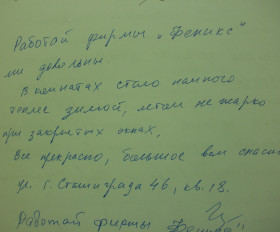 Работой фирмы „Феникс"
мы довольны
В комнатах стало намного
теплее зимой, летом не жарко
при закрытых окнах,
Все прекрасно, большое вам спасиб
ул. г. Сталинграда 46, кв. 18.
Работой фирмы „Феникс"